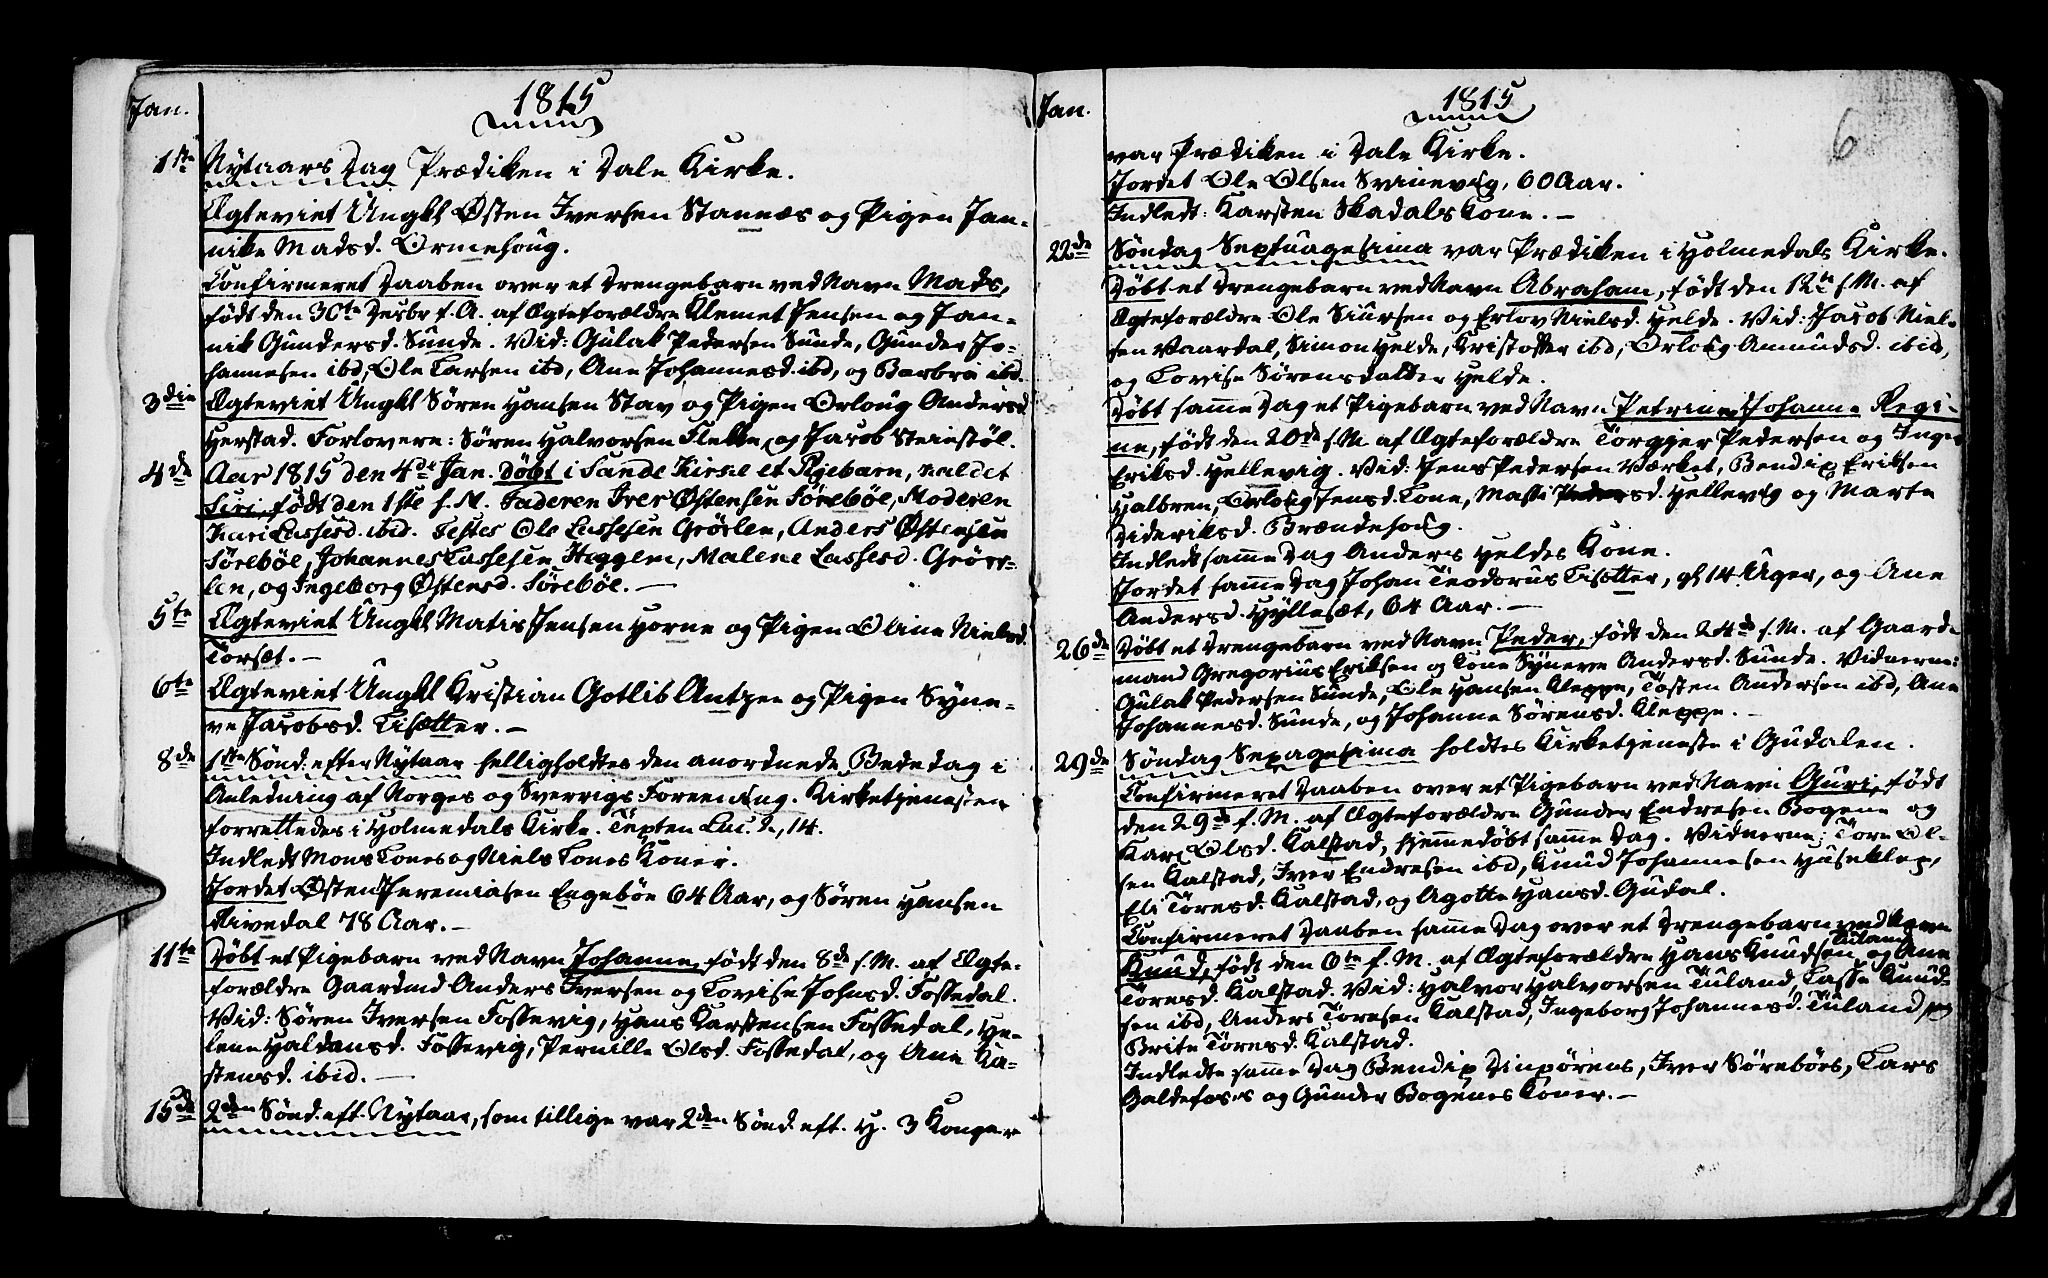 Jan.
1815
1ste Nytaars Dag Prædiken i Dale Kirke.
Ægteviet Ungkl Østen Iversen Stannæs og Pigen Jan-
nike Madsd. Ormehoug.
Confirmeret Daaben over et Drengebarn ved Navn Mads,
født den 30te Decbr f. A. af Ægteforældre Klemet Jensen og Jan-
nik Gundersd. Sunde. Vid: Gulak Pedersen Sunde, Gunder Jo-
hannesen ibd, Ole Larsen ibd, Ane Johannesd. ibd, og Barbra ibd.
3die Ægteviet Ungkl Søren Hansen Stav og Pigen Orloug Andersd
Herstad. Forlovere: Søren Halvorsen Flekke og Jacob Steinstøl.
4de Aar 1815 den 4de Jan. døbt i Sande Kirke et Pigebarn, kaldet
Siri, født den 1ste s. M. Faderen Iver Østensen Sørebøe, Moderen
Kari Lassesd. ibid. Testes Ole Lassesen Grøslen, Anders Østensen
Sørebøe, Johannes Lassesen Heggem, Malene Lassesd. Grøss-
len, og Ingeborg Østensd. Sørebøe. —
5te Ægteviet Ungkl Matis Jensen Horne og Pigen Oline Nielsd.
Torsæt. —
6te Ægteviet Ungkl Kristian Gotlib Antzee og Pigen Syne-
ve Jacobsd. Tisætter. —
8de 1ste Sønd. efter Nytaar helligholdtes den anordnede Bededag i
Anledning af Norges og Sverrigs Foreening. Kirketjenesten
forrettedes i Holmedals Kirke. Texten Luc. 2, 14.
Indledt Mons Tones og Niels Tones Koner.
Jordet Østen Jeremiasen Engebøe 64 Aar, og Søren Hansen
Rivedal 78 Aar. —
11te Døbt et Pigebarn ved Navn Johanne, født den 8de s. M. af Ægte-
forældre Gaardmd Anders Iversen og Lovise Johnsd. Fossedal.
Vid: Søren Iversen Fossevig, Hans Karstensen Fossedal, He-
lene Haldansd. Fossevig, Pernille Olsd. Fossedal, og Ane Ka-
stensd. ibid. —
15de 2den Sønd. eft. Nytaar, som tillige var 2den Sønd. eft. H. 3 Konger
Jan.
1815
6
var Prædiken i Dale Kirke.
Jordet Ole Olsen Svinevig, 60 Aar.
Indledt: Karsten Skadals Kone. —
22de Søndag Septuagesima var Prædiken i Holmedals Kirke.
Døbt et Drengebarn ved Navn Abraham, født den 12te s. M. af
Ægteforældre Ole Siursen og Erlov Nielsd. Helde. Vid: Jacob Niel-
sen Vaardal, Simon Helde, Kristoffer ibd, Orloug Amundsd. ibid,
og Lovise Sørensdatter Helde.
Døbt samme Dag et Pigebarn ved Navn Petrine Johanne Regi-
ne, født den 20de s. M. af Ægteforældre Torgjer Pedersen og Inger
Eriksd. Hellevig. Vid: Jens Pedersen Værket, Bendix Eriksen
Halbren, Orloug Jensd. Tone, Massi Pedersd. Hellevig og Marte
Dideriksd. Brændehoug.
Indledt samme Dag Anders Heldes Kone.
Jordet samme Dag Johan Teodorus Tisætter, gl 14 Uger, og Ane
Andersd. Hyllesæt, 64 Aar. —
26de Døbt et Drengebarn ved Navn Peder, født den 24de s. M. af Gaard-
mand Gregorius Eriksen og Kone Syneve Andersd. Sunde. Vidnerne:
Gulak Pedersen Sunde, Ole Hansen Kleppe, Tosten Andersen ibd, Ane
Johannesd. Sunde, og Johanne Sørensd. Kleppe. —
29de Søndag Sexagesima holdtes Kirketjeneste i Gudalen.
Confirmeret Daaben over et Pigebarn ved Navn Guri, født
den 29de f. M. af Ægteforældre Gunder Endresen Bogene og
Kari Olsd. Kalstad, hjemmedøbt samme Dag. Vidnerne: Tore Ol-
sen Kalstad, Iver Endresen ibd, Knud Johannesen Huseklep,
Eli Toresd. Kalstad, og Agotte Hansd. Gudal.
Confirmeret Daaben samme Dag over et Drengebarn ved Navn
Knud, født den 6te f. M. af Ægteforældre Hans Knudsen Tuland og Ane
Toresd. Kalstad. Vid: Halvor Halvorsen Tuland, Lasse Knud-
sen ibd, Anders Toresen Kalstad, Ingeborg Johannesd. Tuland, og
Brite Toresd. Kalstad.
Indledte samme Dag Bendix Dinpørens, Iver Sørebøes, Lars
Galdefoss og Gunder Bogenes Koner. —